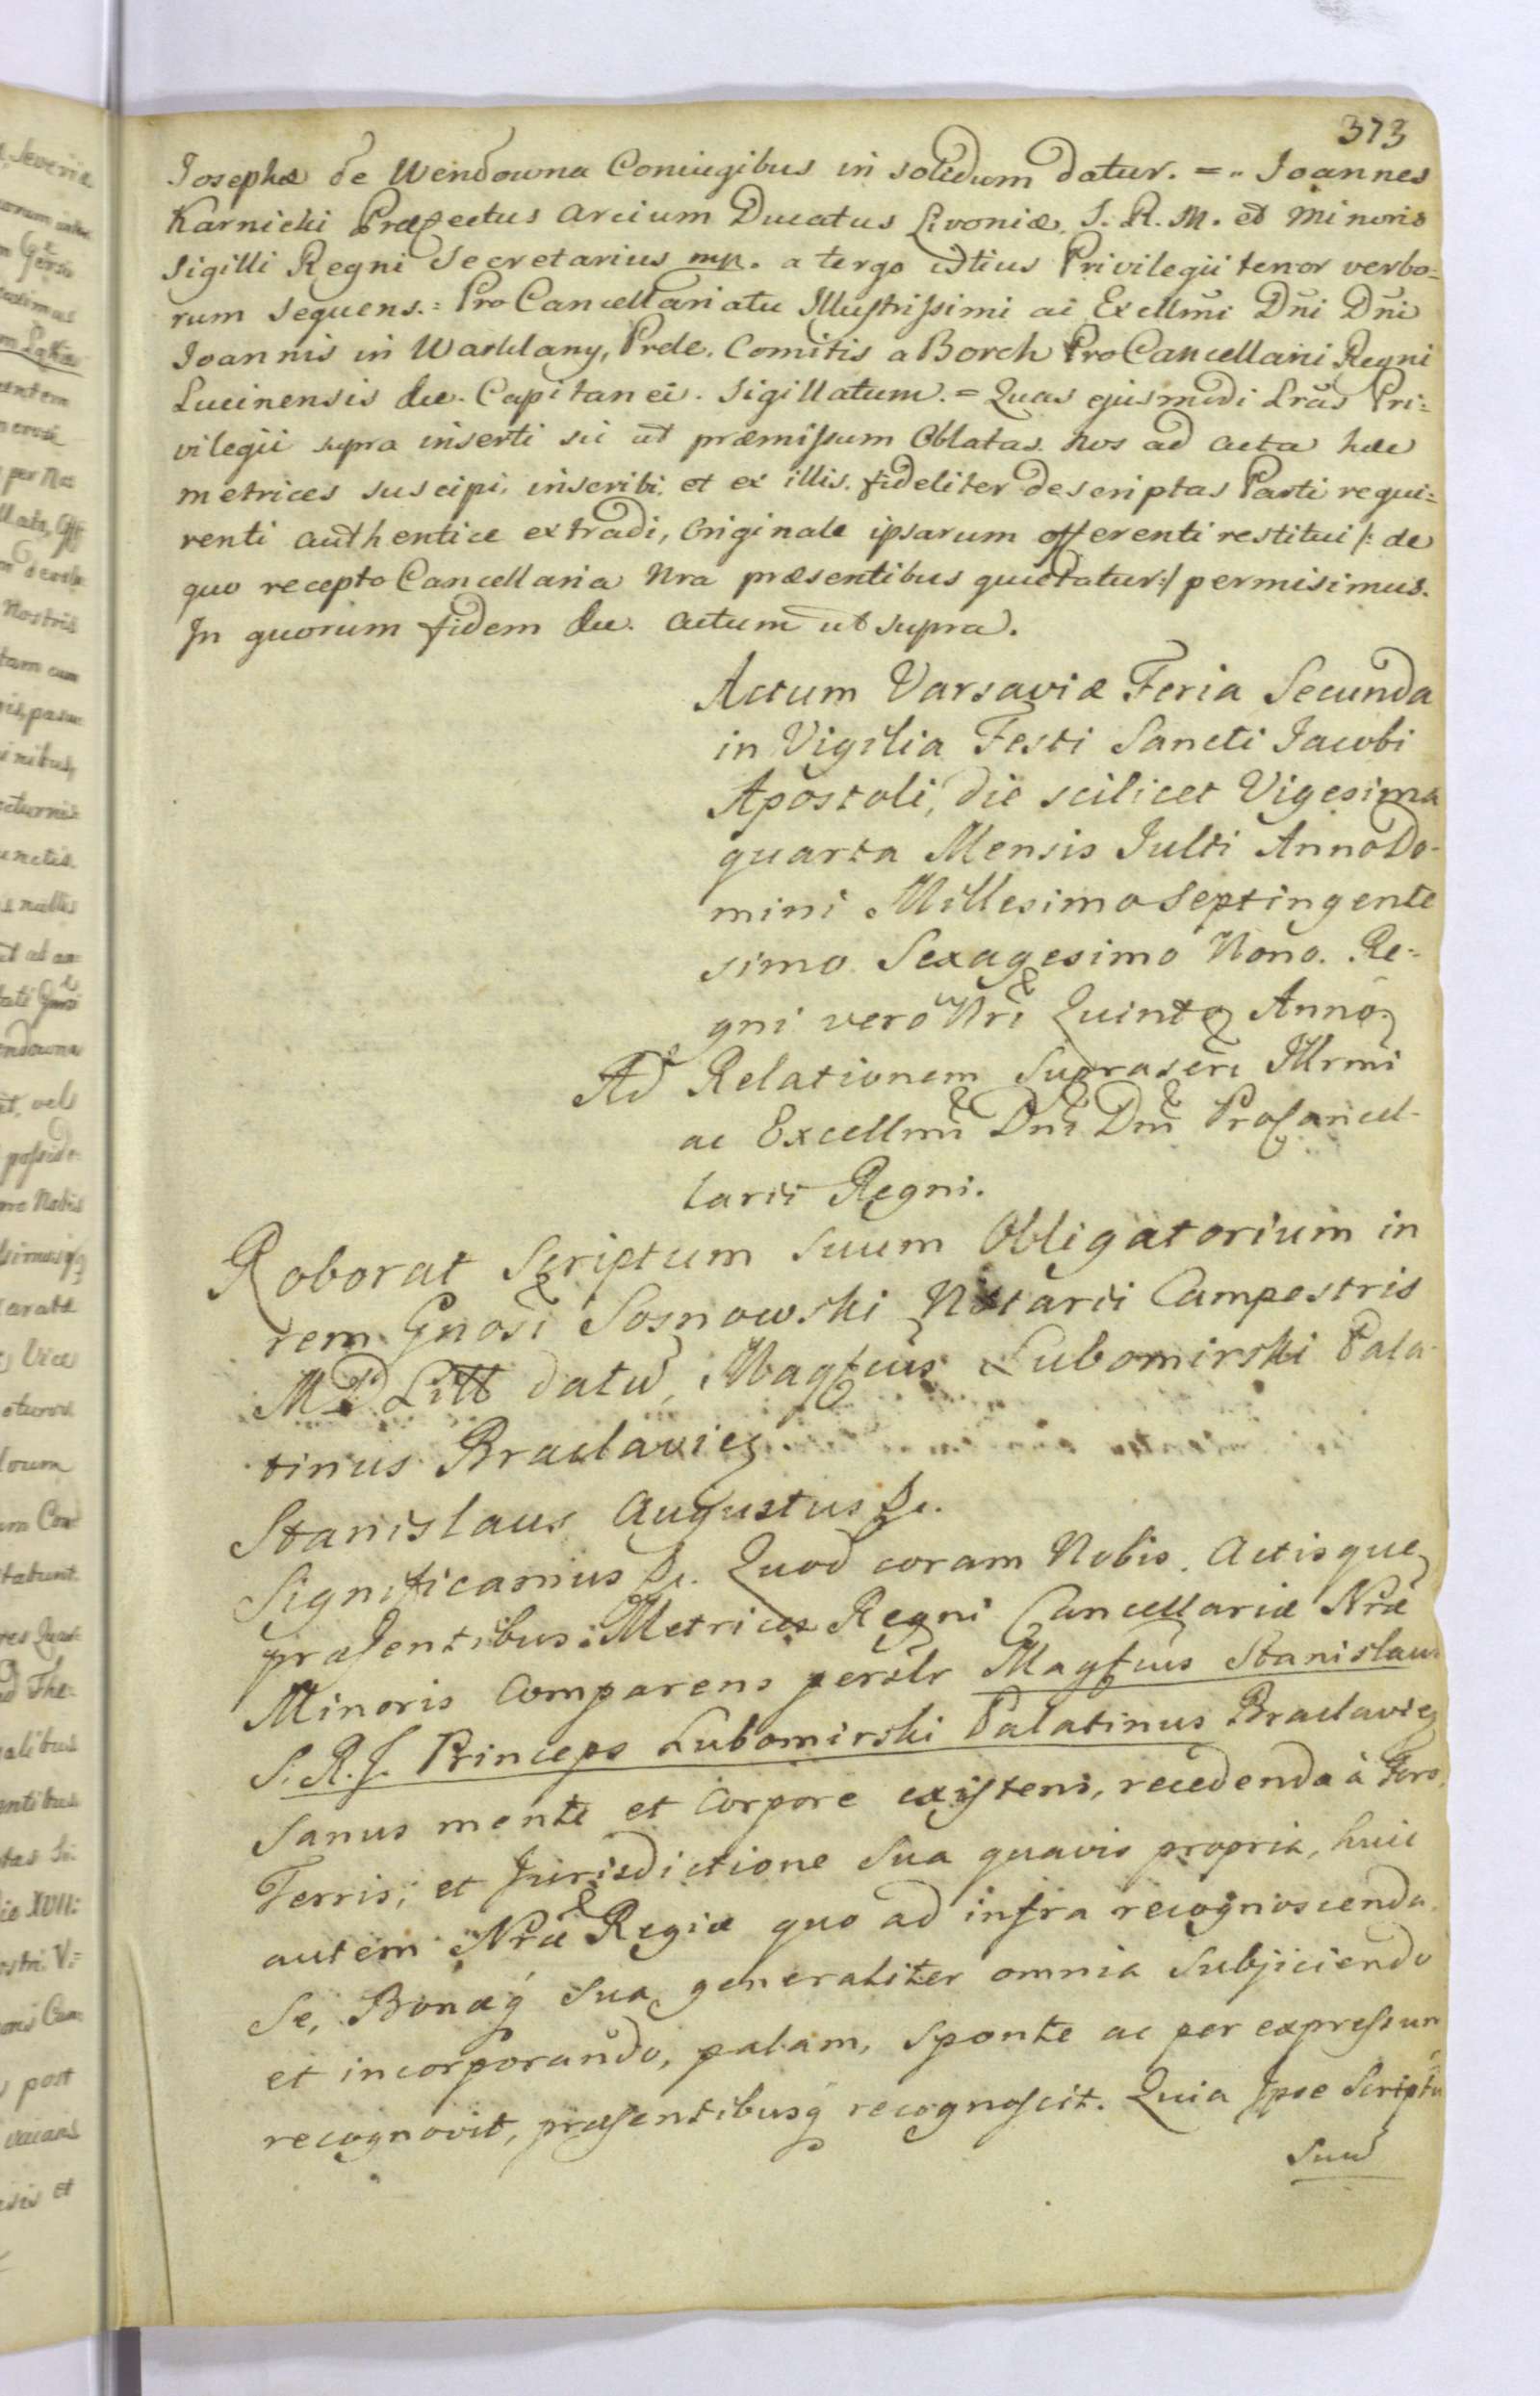 373
Josephæ de Wendowna Coniugibus in solidum datur. = „ Joannes
Karnicki Præfectus Arcium Ducatus Livoniæ, S. R. M. et Minoris
Sigilli Regni Secretarius mp. a tergo istius Privilegii tenor verbo=
rum sequens.= Pro Cancellariatu Illustrissimi ac Excellmi Dni Dni
Joannis in Warklany, Prele, Comitis a Borch ProCancellarii Regni
Lucinensis &c. Capitanei. Sigillatum. = Quas ejusmodi Lras Pri=
vilegii supra inserti sic ut præmissum Oblatas. Nos ad acta hæc
metrices suscipi, inscribi, et ex illis. fideliter descriptas Parti requi=
renti authentice extradi, Originale ipsarum offerenti restitui /: de
quo recepto Cancellaria Nra præsentibus quietatur:/ permisimus.
In quorum fidem &c. Actum ut supra.
Actum Varsaviæ Feria Secunda
in Vigilia Festi Sancti Jacobi
Apostoli, die scilicet Vigesima
quarta Mensis Julii Anno Do-
mini Millesimo Septingente
simo Sexagesimo Nono. Re=
gni vero Nri Quinto Anno.
Ad Relationem Suprascri Illrmi
ac Excellmi Dni Dni ProCancel-
larii Regni.
Roborat Scriptum suum Obligatorium in
rem Gnosi Sosnowski Notarii Campestris
M D Litt datu, Magfcus Lubomirski Pala
tinus Braclavieñ
Stanislaus Augustus &c.
Significamus &c. Quod coram Nobis. Actisque
præsentibus Metrices Regni Cancellariæ Nræ
Minoris Comparens persltr Magfcus Stanislaus
S. R. J. Princeps Lubomirski Palatinus Braclavieñ
Sanus mente et Corpore existens, recedendo à Foro,
Terris, et Jurisdictione Sua quavis propria, huic
autem Nræ Regiæ quo ad infra recognoscenda,
Se, Bonaq́ Sua generaliter omnia Subjiciendo
et incorporando, palam, sponte ac per expressum
recognovit, præsentibusq́ recognoscit. Quia Ipse Scriptu
Suu